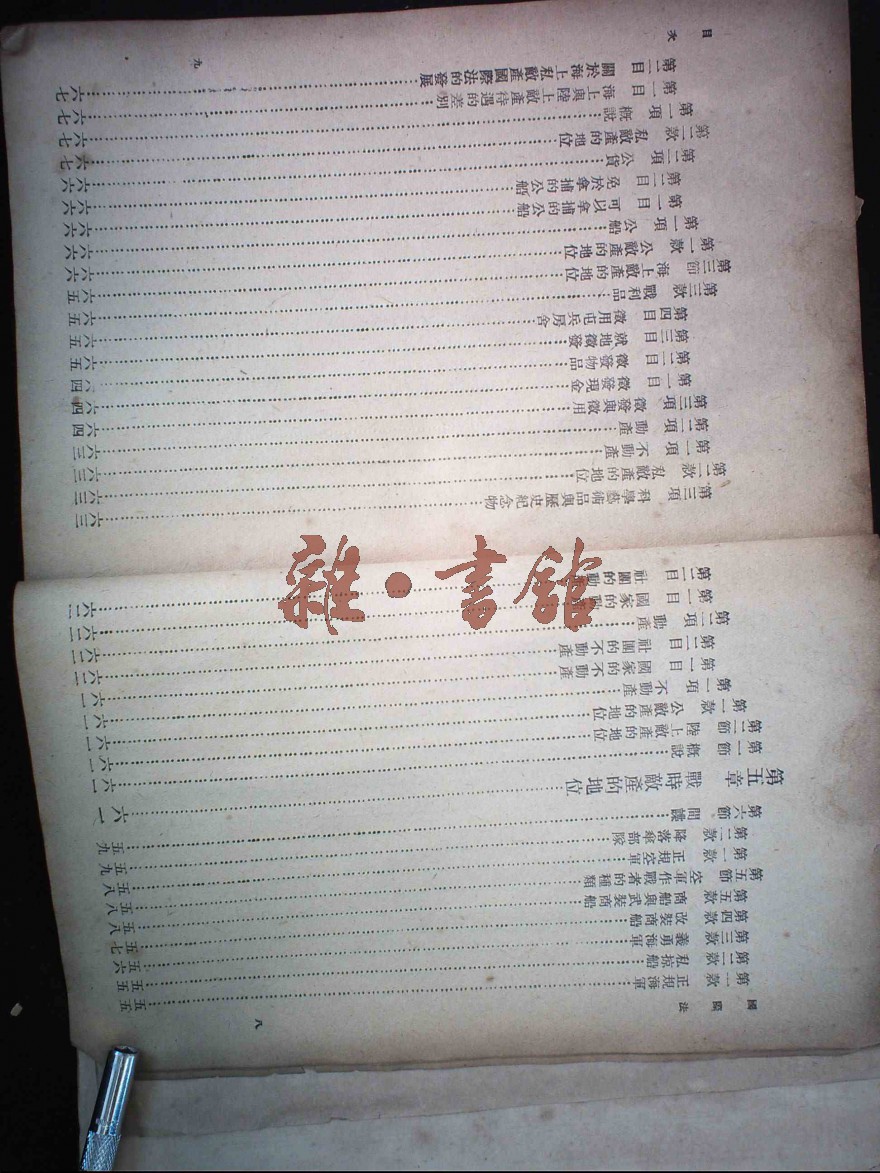 國際法
八
第一款　正規海軍……五五
第二款　私掠船……五五
第三款　義勇海軍……五六
第四款　改裝商船……五七
第五款　商船與武裝商船……五八
第五節　空軍作戰者的種類……五八
第一款　正規空軍……五八
第二款　降落傘部隊……五九
第六節　間諜……五九
第五章　戰時敵產的地位……六一
第一節　概說……六一
第二節　陸上敵產的地位……六一
第一款　公敵產的地位……六一
第一項　不動產……六一
第一目　國家的不動產……六一
第二目　社團的不動產……六二
第二項　動產……六二
第一目　國家的動產……六二
第二目　社團的動產……六二
第三項　科學藝術品與歷史紀念物……六三
第二款　私敵產的地位……六三
第一項　不動產……六三
第二項　動產……六三
第三項　徵發與徵用……六四
第一目　徵發現金……六四
第二目　徵發物品……六四
第三目　就地徵發……六五
第四目　徵用屯兵房舍……六五
第三款　戰利品……六五
第三節　海上敵產的地位……六五
第一款　公敵產的地位……六六
第一項　公船……六六
第一目　可以拿捕的公船……六六
第二目　免於拿捕的公船……六六
第二項　公貨……六六
第二款　私敵產的地位……六七
第一項　概說……六七
第一目　海上與陸上敵產待遇的差別……六七
第二目　關於海上私敵產國際法的發展……六七
目次
九
雜·書館